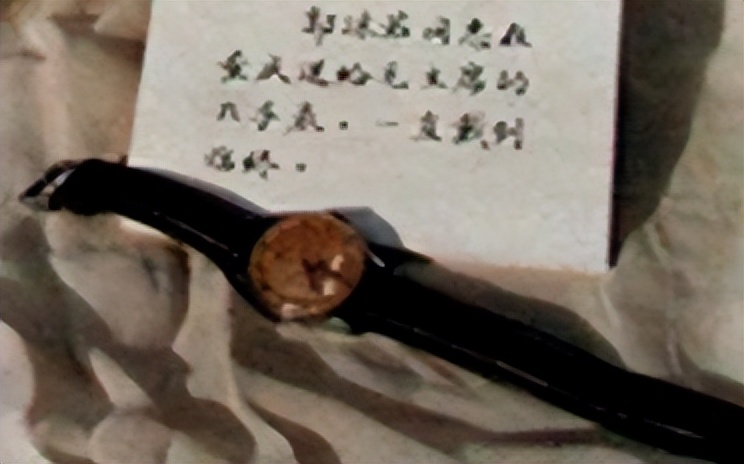 郭沫若同志在
重庆送给毛主席的
手表。一直戴到
临终。